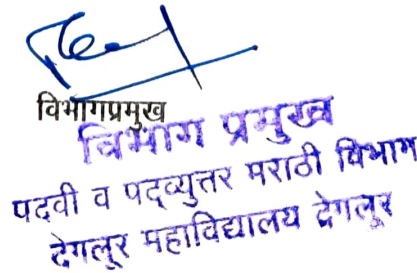 विभागप्रमुख
विभाग प्रमुख
पदवी व पदव्युत्तर मराठी विभाग
देगलूर महाविद्यालय देगलूर